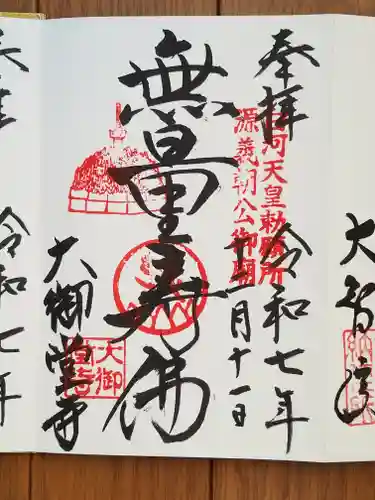 奉拝
白河天皇勅願所
源義朝公御願
令和七年
十一月十一日
無量寿佛
大御堂寺
大御堂寺
令和七年